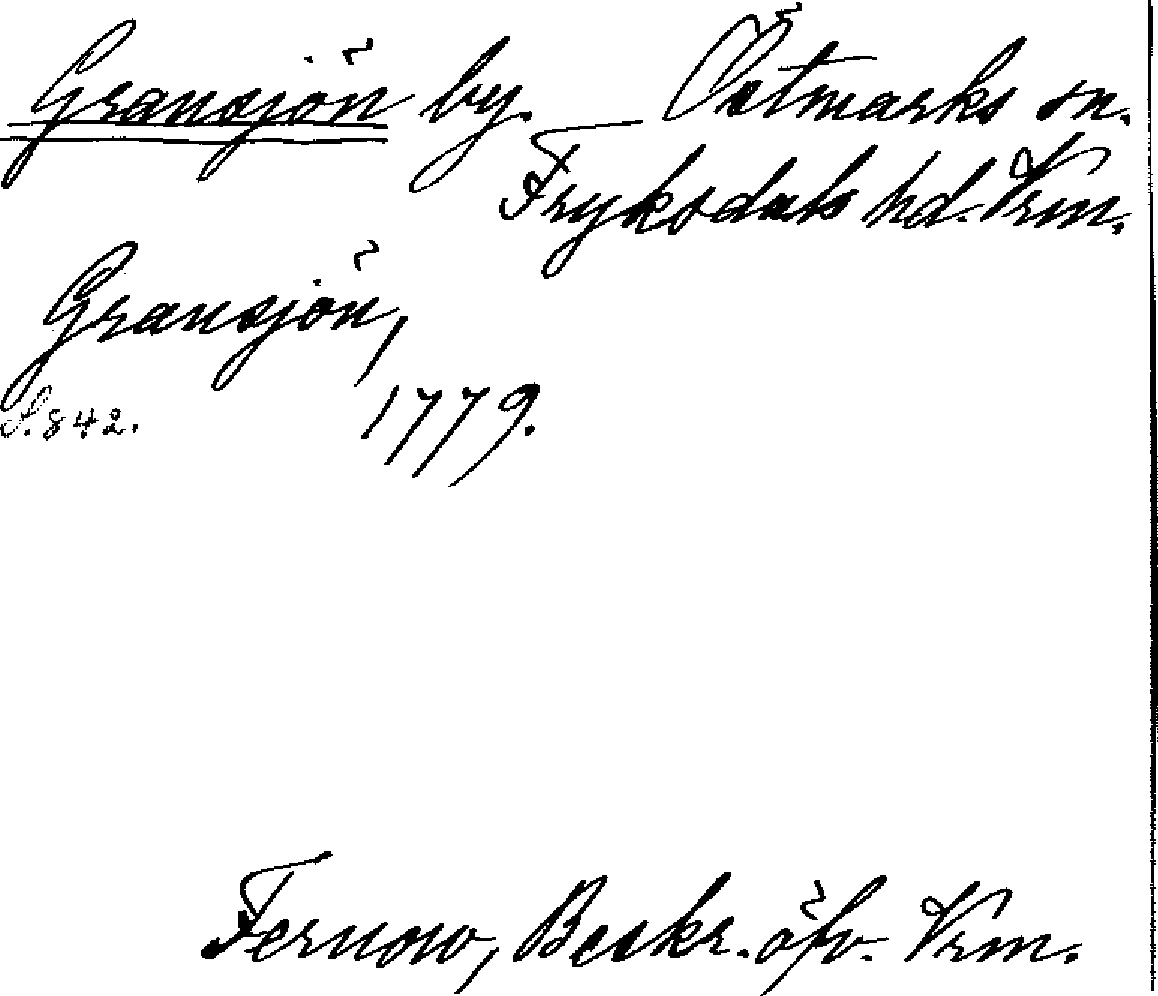 Gransjön by. Östmarks sn.
Fryksdals hd. Vrm.
Gransjön,
S. 842. 1779.
Fernow, Beskr. öfv. Vrm.